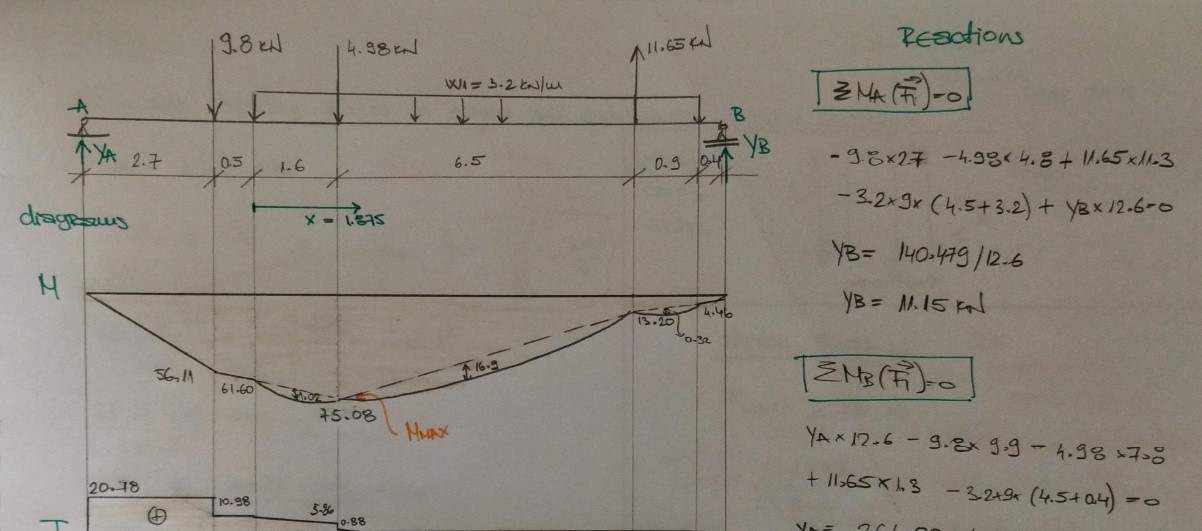 Reactions
9.8 kN
4.98 kN
11.65 kN
W1 = 3.2 kN/m
A
B
YA
YB
2.7
0.5
1.6
6.5
0.9
0.4
x = 1.875
diagrams
M
56.11
61.60
1.02
75.08
16.9
13.20
0.32
4.46
MMAX
20.78
10.98
5.86
0.88
⊕
T
ΣMA(Fi)=0
- 9.8×2.7 -4.98×4.8 + 11.65×11.3
-3.2×9×(4.5+3.2) + YB×12.6=0
YB= 140.479/12.6
YB = 11.15 kN
ΣMB(Fi)=0
YA×12.6 - 9.8×9.9 - 4.98×7.8
+ 11.65×1.3 -3.2×9×(4.5+0.4) = 0
YA=